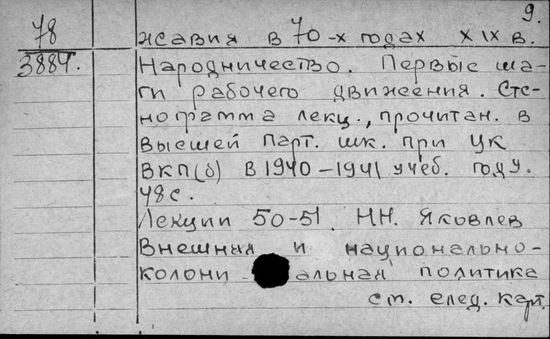 9.
78
3884.
жавия в 70-х годах XIX в.
Народничество. Первые ша-
ги рабочего движения. Сте-
нограмма лекц., прочитан. в
Высшей парт. шк. при ЦК
ВКП(б) в 1940-1941 учеб. году.
48 с.
Лекции 50-51. Н.Н. Яковлев
Внешная и национально-
колони альная политика
см. след. карт.